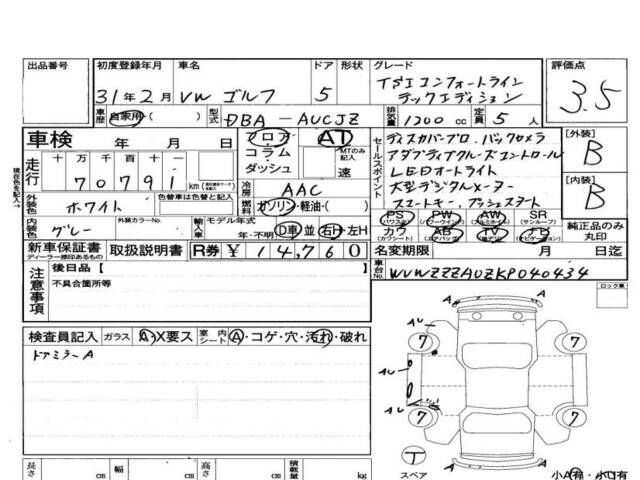 出品番号 初度登録年月 車名 ドア 形状 グレード 評価点
31年2月 VW ゴルフ 5 TSIコンフォートライン
テックエディション 3.5
車歴 自家用( ) 型式 DBA-AUCJZ 排気量 1200cc 定員 5人
車検 年 月 日 フロア AT
コラム MTのみ記入
ダッシュ 速
セールスポイント
ディスカバープロ・バックカメラ
アダプティブクルーズコントロール
LEDオートライト
大型デジタルメーター
スマートキー、プッシュスタート
[外装] B
[内装] B
現在色を記入→
走行 十 万 千 百 十 一
70791 km
冷房 AAC
外装色 ホワイト 色替車は色替と記入
燃料 ガソリン・軽油・( )
内装色 グレー 外装カラーNo. 輸入車 モデル年式 年・不明 D車 並 右H 左H
PS (パワステ) PW (パワーウインドウ) AW (アルミホイル) SR (サンルーフ)
カワ (カワシート) AB (エアバッグ) TV (テレビ) ナビ (ナビゲーション)
純正品のみ丸印
新車保証書 ディーラー捺印あるもの 取扱説明書 R券 ¥14,760
名変期限 月 日迄
注意事項 後日品【 】
不具合箇所等
車台No. WVWZZZAUZKP040434
ロック車
検査員記入 ガラス A・X要ス 室内シート A・コゲ・穴・汚れ・破れ
ドアミラーA
A
AU
7 7
AU
AU
7 7
T
スペア
A
小A有・小U有
長さ cm 幅 cm 高さ cm 積載量 kg